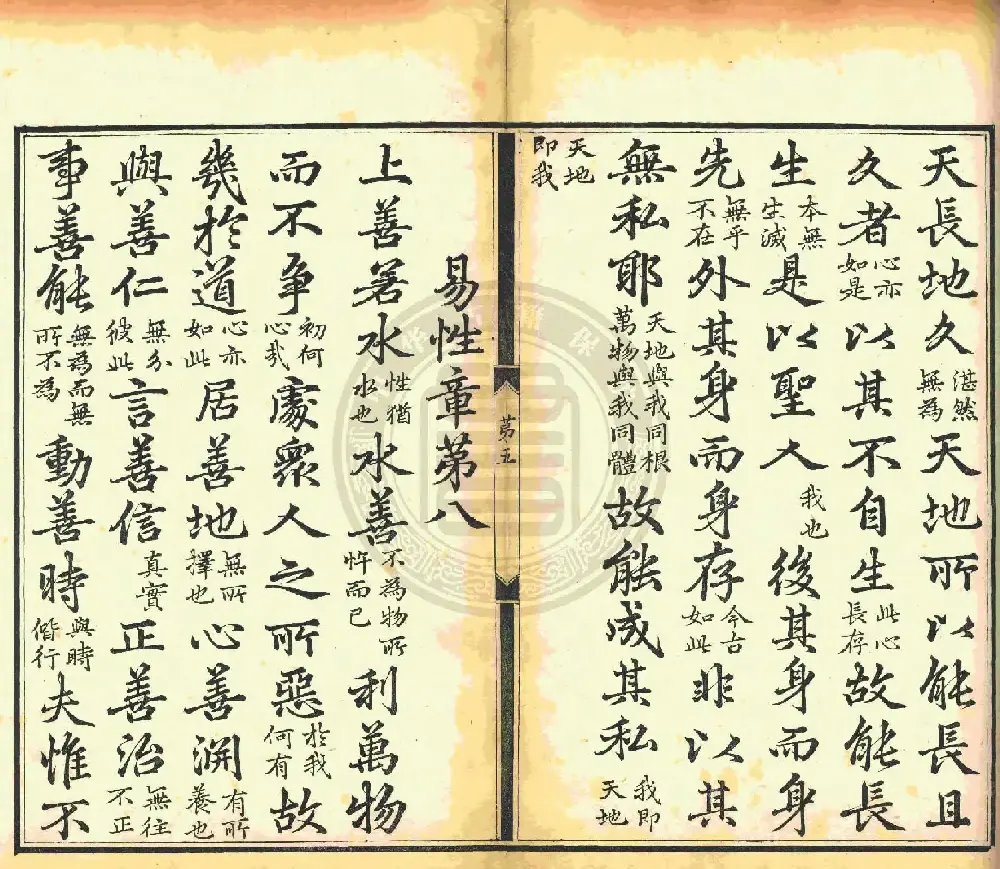 天長地久湛然無為天地所以能長且
久者心亦如是以其不自生此心長存故能長
生本無生滅是以聖人我也後其身而身
先無乎不在外其身而身存今古如此非以其
無私耶天地與我同根萬物與我同體故能成其私我即天地
天地即我
第五
易性章第八
上善若水性猶水也水善不為物所忤而已利萬物
而不爭初何心哉處眾人之所惡於我何有故
幾於道心亦如此居善地無所擇也心善淵有所養也
與善仁無分彼此言善信真實正善治無往不正
事善能無為而無所不為動善時與時偕行夫惟不